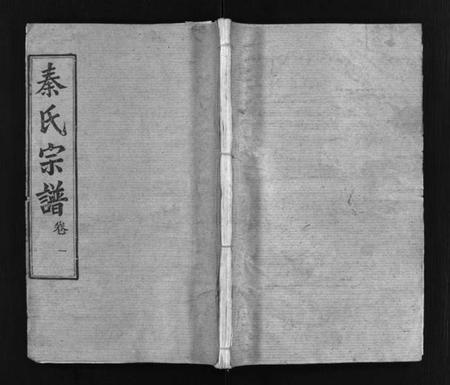 秦氏宗譜
卷一